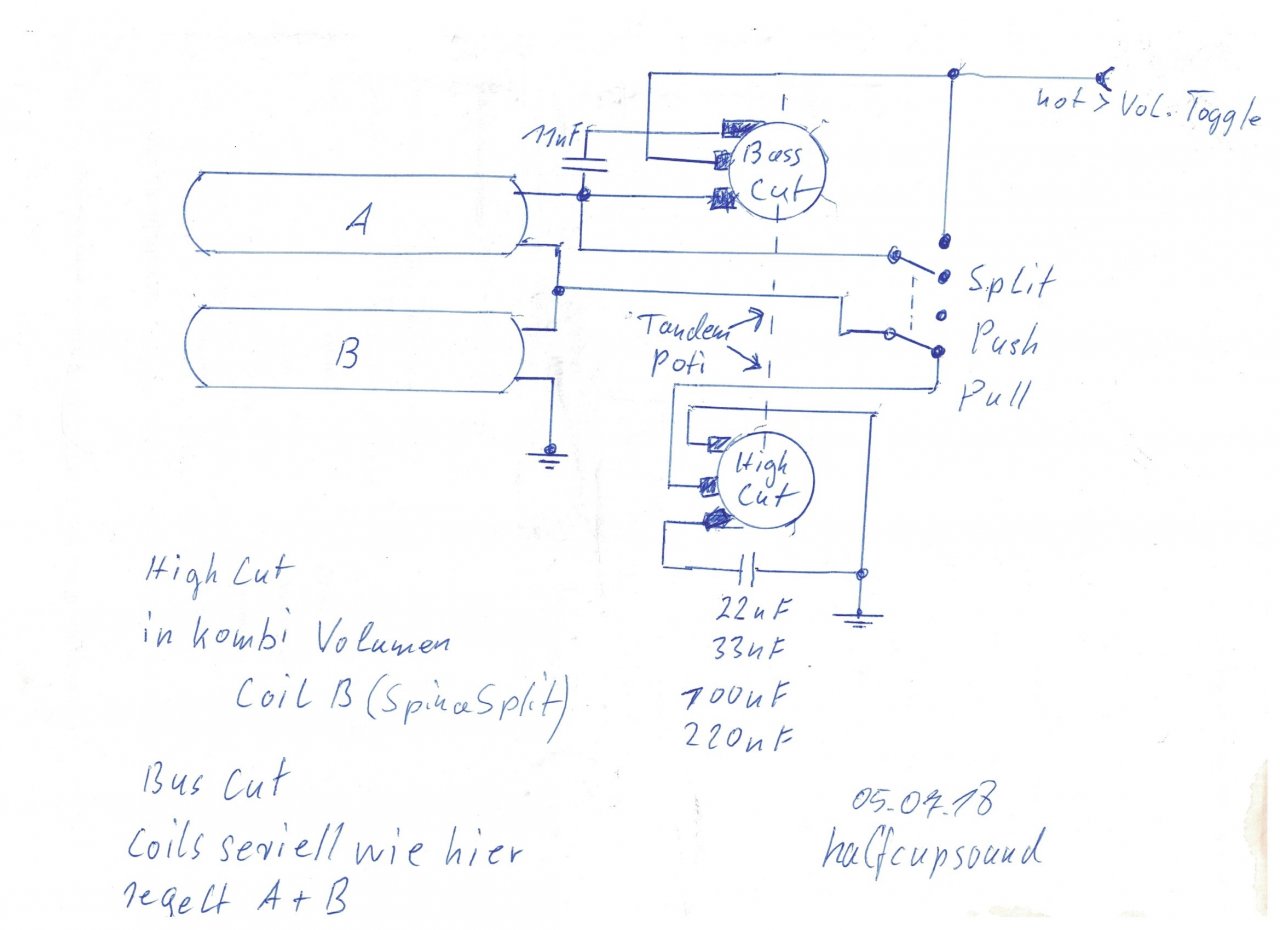 hot > Vol. Toggle
11nF
Bass
Cut
A
Split
Tandem
Poti
Push
B
Pull
High
Cut
22nF
33nF
100nF
220nF
High Cut
in kombi Volumen
Coil B (SpinaSplit)
Bus Cut
Coils seriell wie hier
regelt A + B
05.07.18
halfcupsound